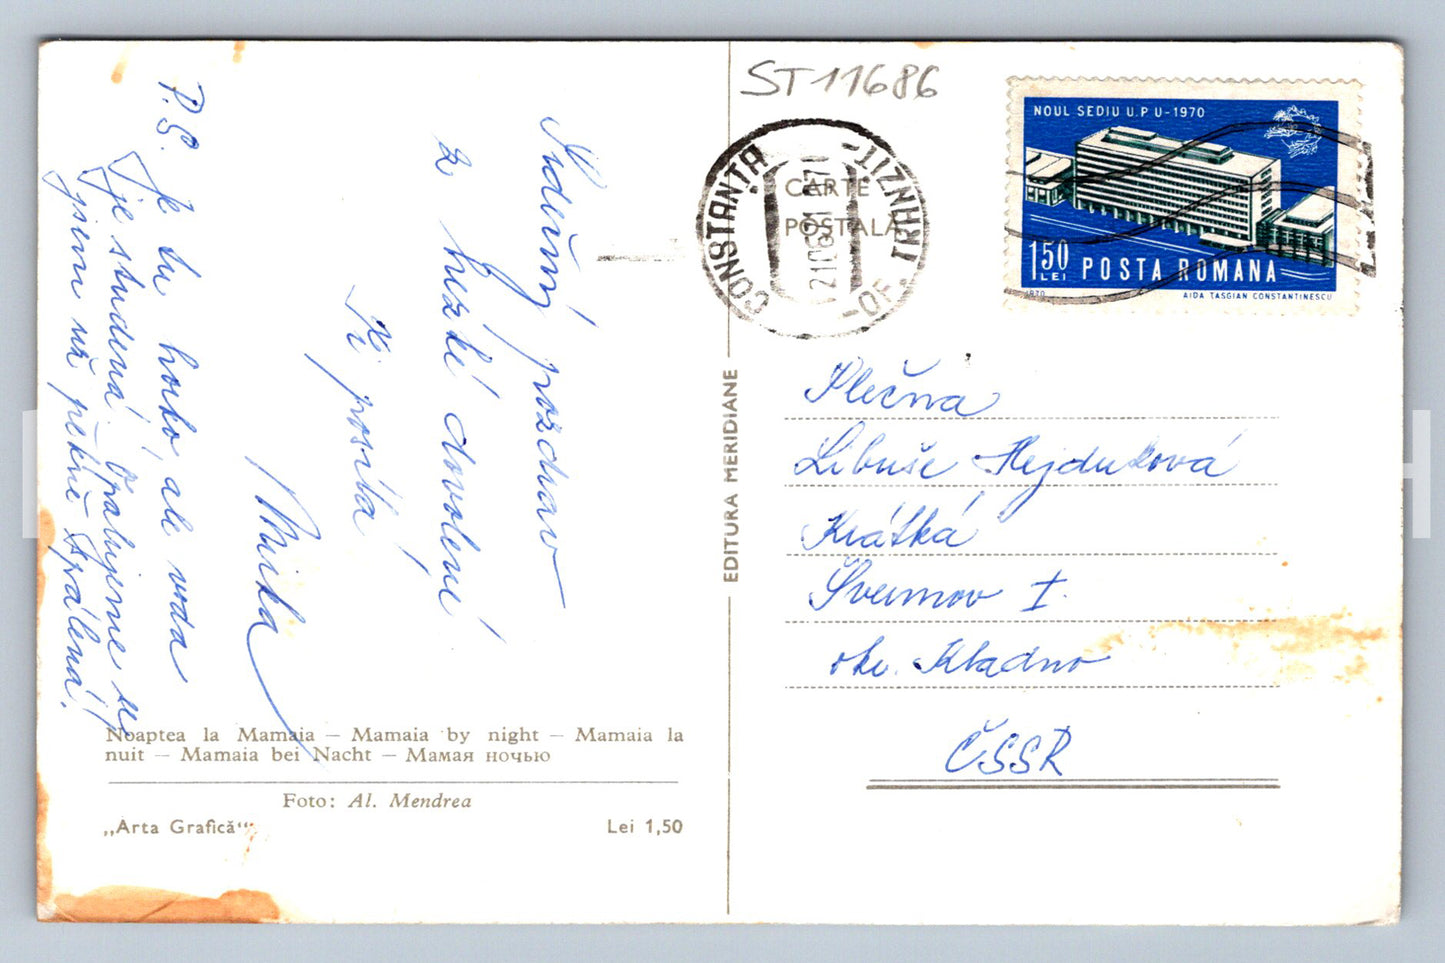 ST 11686
CARTE
POȘTALĂ
CONSTANȚA
-OF. TRANZIT-
NOUL SEDIU U.P U-1970
150
LEI
POSTA ROMANA
1970
AIDA TASGIAN CONSTANTINESCU
Srdečný pozdrav
z hezké dovolené
Ti posílá
Mirka
P.S. Je tu horko ale voda
je studená. Opalujeme se,
jsem už pěkně spálená!
EDITURA MERIDIANE
Slečna
Libuše Hejduková
Krátká
Švermov I.
okr. Kladno
ČSSR
Noaptea la Mamaia — Mamaia by night — Mamaia la
nuit — Mamaia bei Nacht — Мамая ночью
Foto: Al. Mendrea
„Arta Grafică“
Lei 1,50